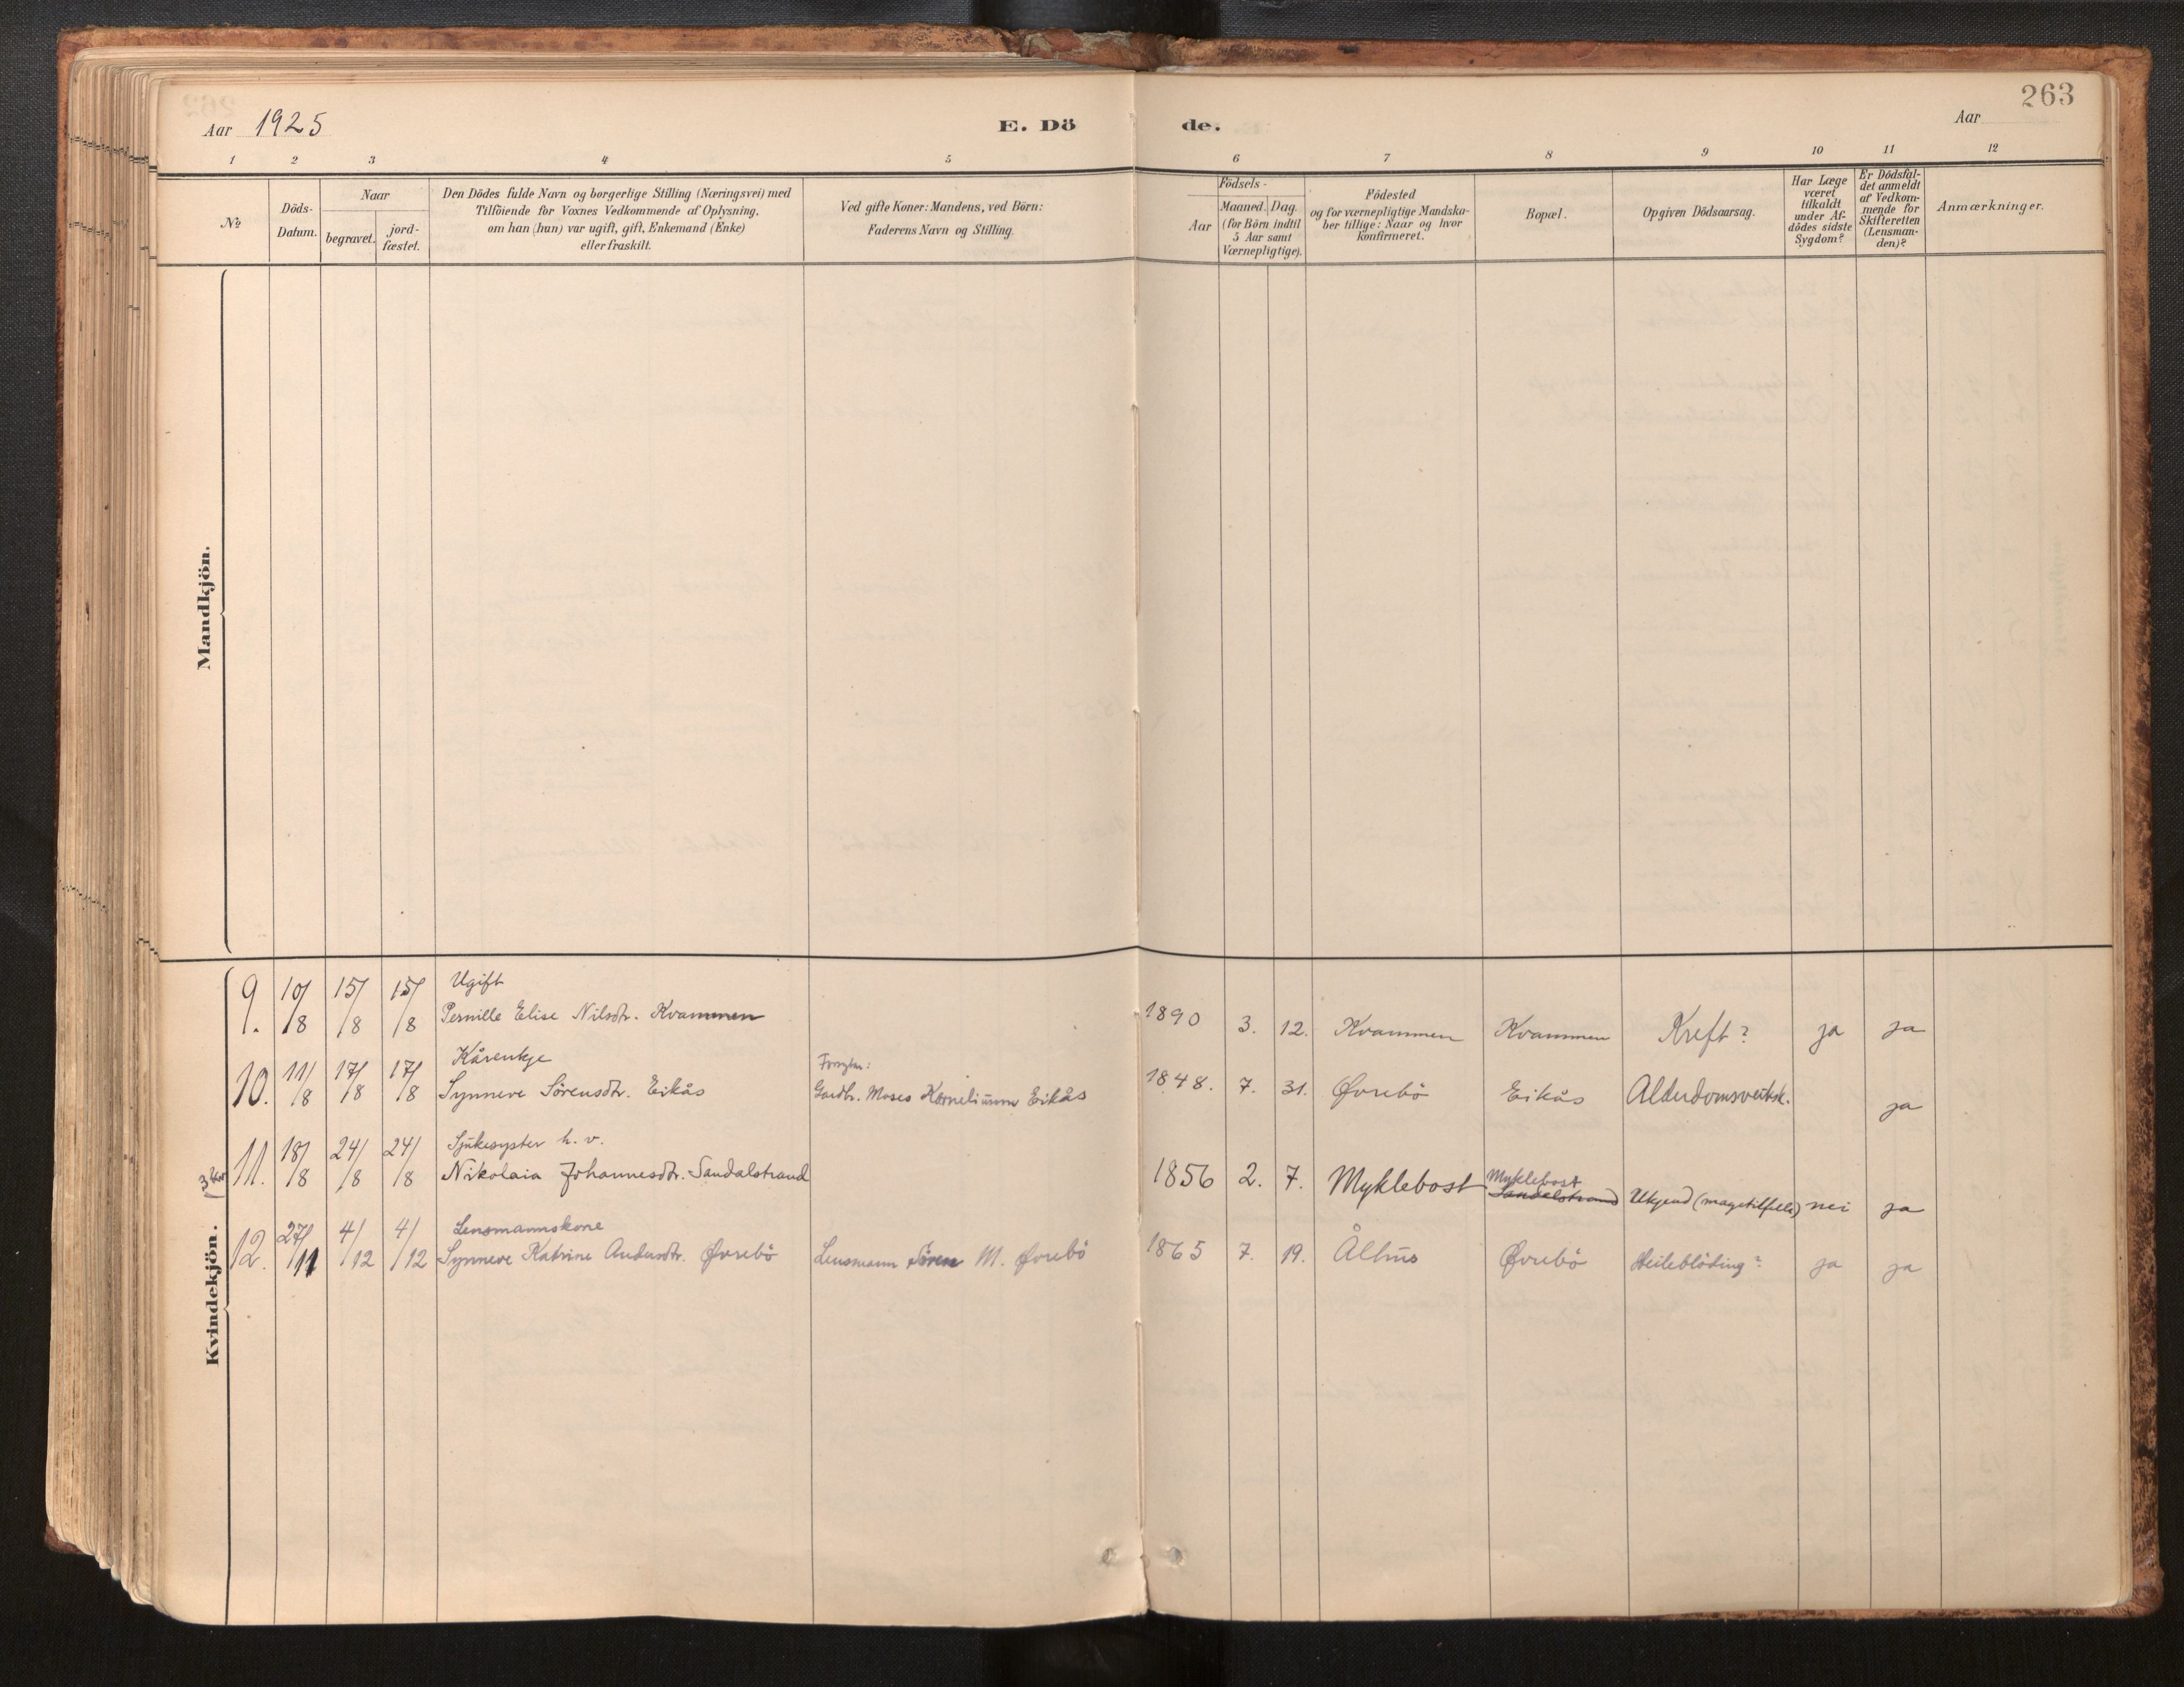 263
Aar 1925
E. Dö
de.
Aar
1 2 3 4 5 6 7 8 9 10 11 12
No
Döds-
Datum.
Naar
begravet.
jord-
fæstet.
Den Dödes fulde Navn og borgerlige Stilling (Næringsvei) med
Tilföiende for Voxnes Vedkommende af Oplysning,
om han (hun) var ugift, gift, Enkemand (Enke)
eller fraskilt.
Ved gifte Koner: Mandens, ved Börn:
Faderens Navn og Stilling.
Födsels-
Aar
Maaned. Dag.
(for Börn indtil
5 Aar samt
Værnepligtige).
Födested
og for værnepligtige Mandska-
ber tillige: Naar og hvor
konfirmeret.
Bopæl.
Opgiven Dödsaarsag.
Har Læge
været
tilkaldt
under Af-
dödes sidste
Sygdom?
Er Dödsfal-
det anmeldt
af Vedkom-
mende for
Skifteretten
(Lensman-
den)?
Anmærkninger.
Mandkjön.
Kvindekjön.
Ugift
9. 10/8 15/8 15/8 Pernille Elise Nilsdtr. Kvammen 1890 3. 12. Kvammen Kvammen Kreft? ja ja
Kårenkje
10. 11/8 17/8 17/8 Synneve Sörensdtr. Eikås Gardbr. Moses Korneliussen Eikås 1848. 7. 31. Øvrebö Eikås ja
Sjukesyster h. v.
11. 18/8 24/8 24/8 Nikolaia Johannesdtr. Sandalstrand 1856 2. 7. Myklebost Myklebost Sandalstrand Ukjend (magetilfelle) nei ja
Lensmannskone
12. 27/11 4/12 4/12 Synneve Katrine Andersdtr. Øvrebö Lensmann Sören M. Øvrebö 1865 7. 19. Ålhus Øvrebö Heileblöding? ja ja